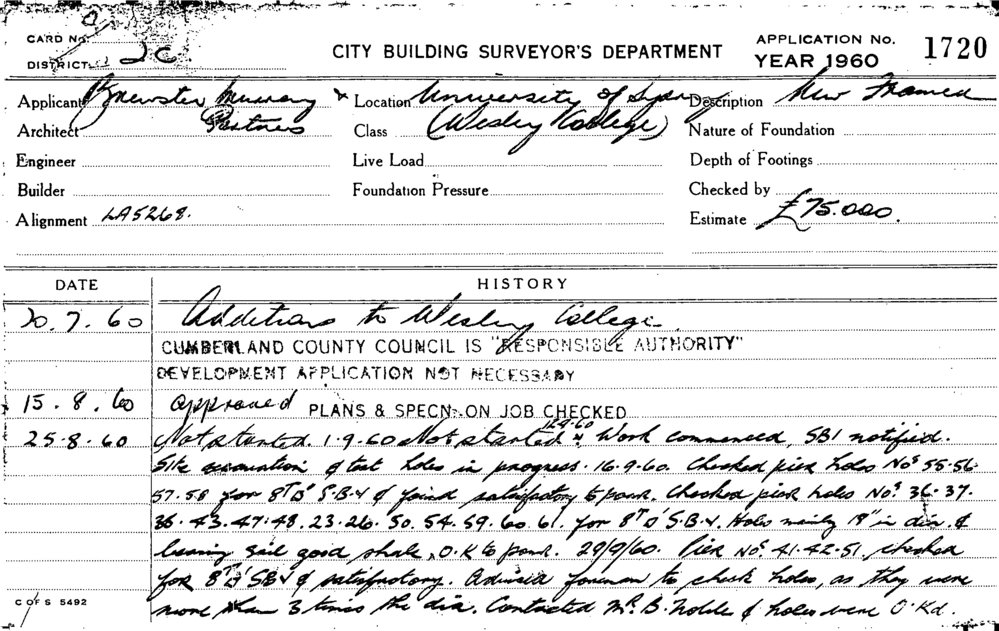 CARD No.
DISTRICT 2C.
CITY BUILDING SURVEYOR'S DEPARTMENT
APPLICATION No. 1720
YEAR 1960
Applicant Brewster Murray
Architect Partners
Engineer
Builder
Alignment LA5268.
Location University of Sydney
Class (Wesley College)
Live Load
Foundation Pressure
Description New Framed
Nature of Foundation
Depth of Footings
Checked by
Estimate £75.000.
DATE HISTORY
20.7.60 Additions to Wesley College.
CUMBERLAND COUNTY COUNCIL IS "RESPONSIBLE AUTHORITY"
DEVELOPMENT APPLICATION NOT NECESSARY
15.8.60 approved PLANS & SPECN. ON JOB CHECKED
12.9.60
25.8.60 Not started. 1.9.60 Not started Work commenced, SBI notified.
Site excavation & test holes in progress. 16.9.60. Checked pier holes Nos 55.56.
57.58 for 8 S.B.V & found satisfactory to pour. Checked pier holes Nos. 36.37.
38.43.47.48.23.26.50.54.59.60.61. for 8 S.B.V. Holes mainly 18" in dia. &
bearing soil good shale, O.K to pour. 29/9/60. Pier Nos. 41.42.51. checked
for 8 SBV & satisfactory. Advised foreman to check holes, as they were
more than 3 times the dia. Contacted Mr. B. & holes were O.Kd.
C OF S 5492